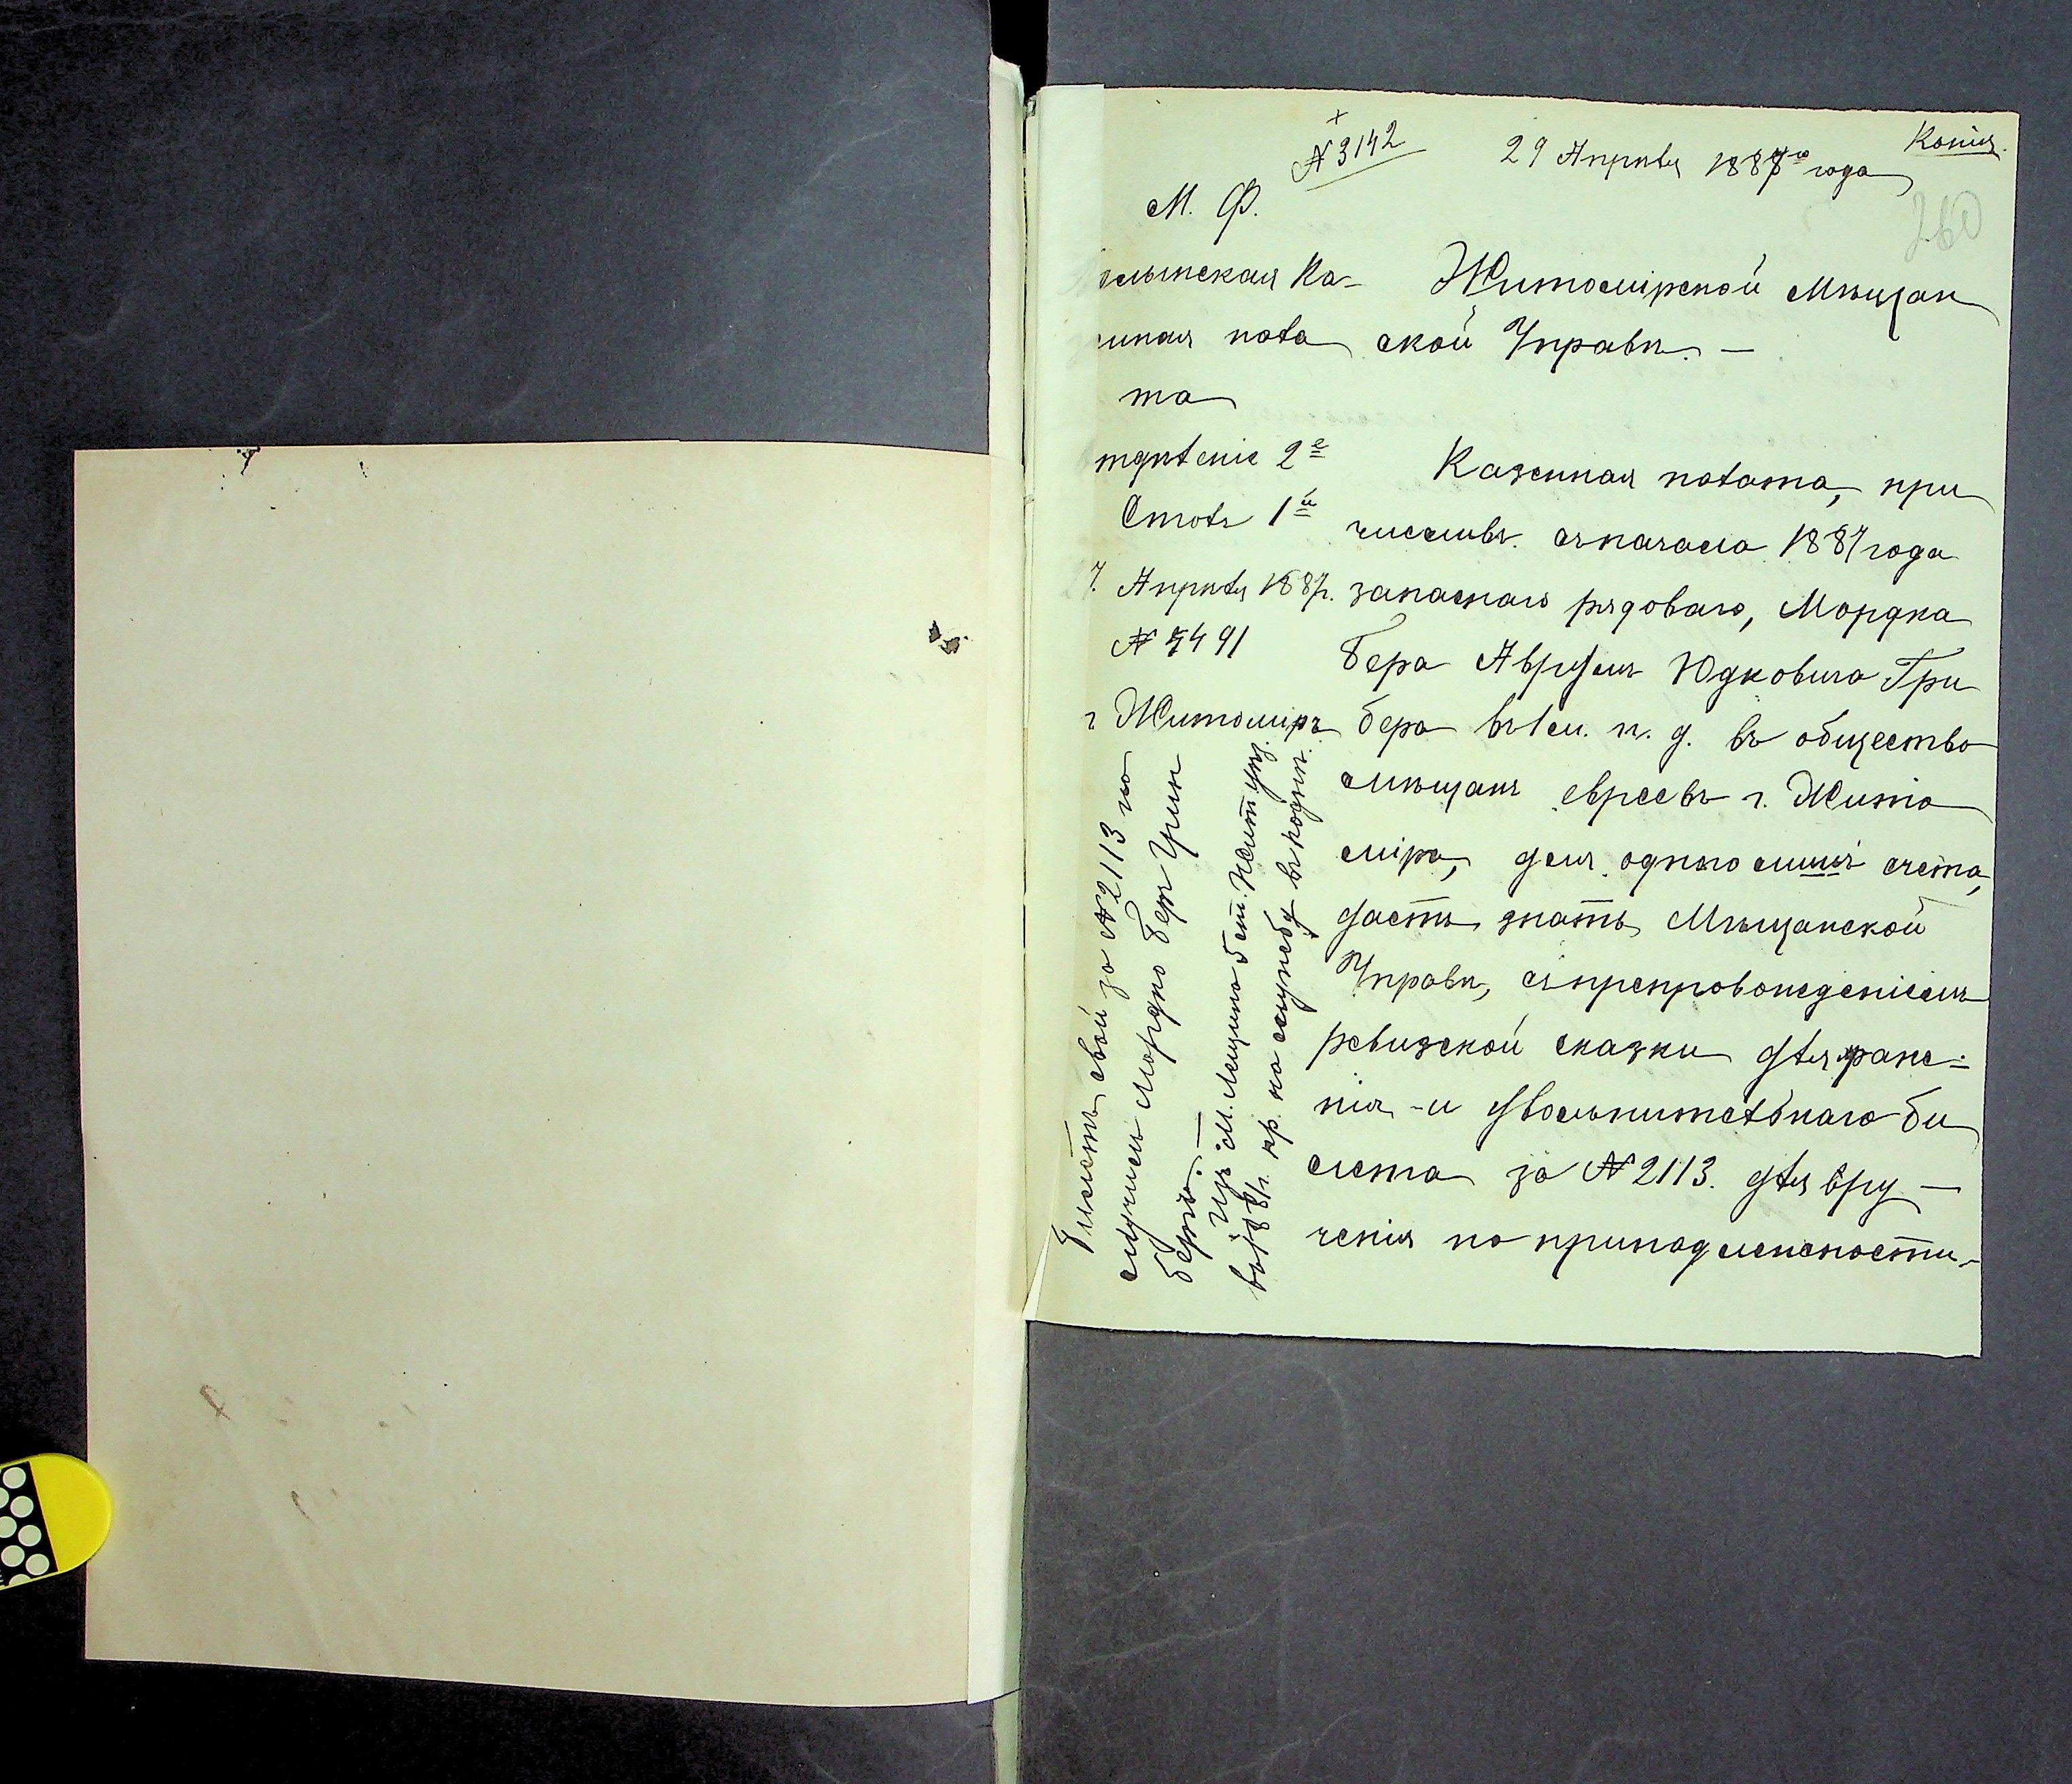 Копія.
№ 3142
29 Апрѣля 1887го года
260
М. Ф.
олынская Ка-
нная пала
та
тдѣленіе 2е
Столъ 1й
7. Апрѣля 1887г.
№ 5491
г Житоміръ
Житомірской Мѣщан
ской Управѣ. —
Казенная палата, при
числивъ съ начала 1887 года
запаснаго рядоваго, Мордка
Бера Аврума Юдковича Гри
бера въ 1 м. п. д. въ общество
мѣщанъ евреевъ г. Жито
міра, для одного лишь счета,
даетъ знать Мѣщанской
Управѣ, съ препровожденіемъ
ревизской сказки для хране-
нія и увольнительнаго би
лета за № 2113. для вру-
ченія по принадлежности.
Билетъ свой за № 2113 по
лучилъ Мордко Беръ Грин
бергъ. —
вы 1887г. на службу въ